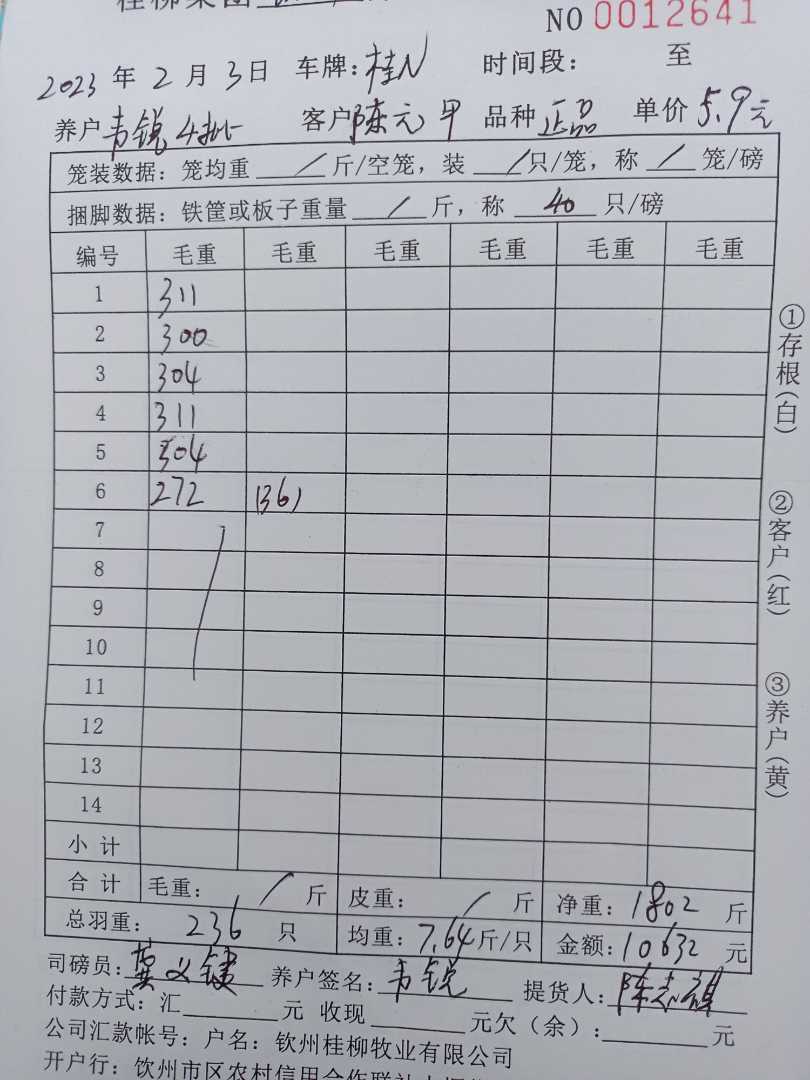 桂柳集团
NO 0012641
2023 年 2 月 3 日 车牌: 桂N 时间段: 至
养户 韦锐4批 客户 陈元甲 品种 正品 单价 5.9元
笼装数据: 笼均重 / 斤/空笼, 装 / 只/笼, 称 / 笼/磅
捆脚数据: 铁筐或板子重量 / 斤, 称 40 只/磅
编号 毛重 毛重 毛重 毛重 毛重 毛重
1 311
2 300
3 304
4 311
5 304
6 272 (36)
7
8
9
10
11
12
13
14
小计
合计 毛重: / 斤 皮重: / 斤 净重: 1802 斤
总羽重: 236 只 均重: 7.64 斤/只 金额: 10632 元
司磅员: 龚义键 养户签名: 韦锐 提货人: 陈志祺
付款方式: 汇 元 收现 元欠(余): 元
公司汇款帐号: 户名: 钦州桂柳牧业有限公司
开户行: 钦州市区农村信用合作联社
①存根(白)
②客户(红)
③养户(黄)